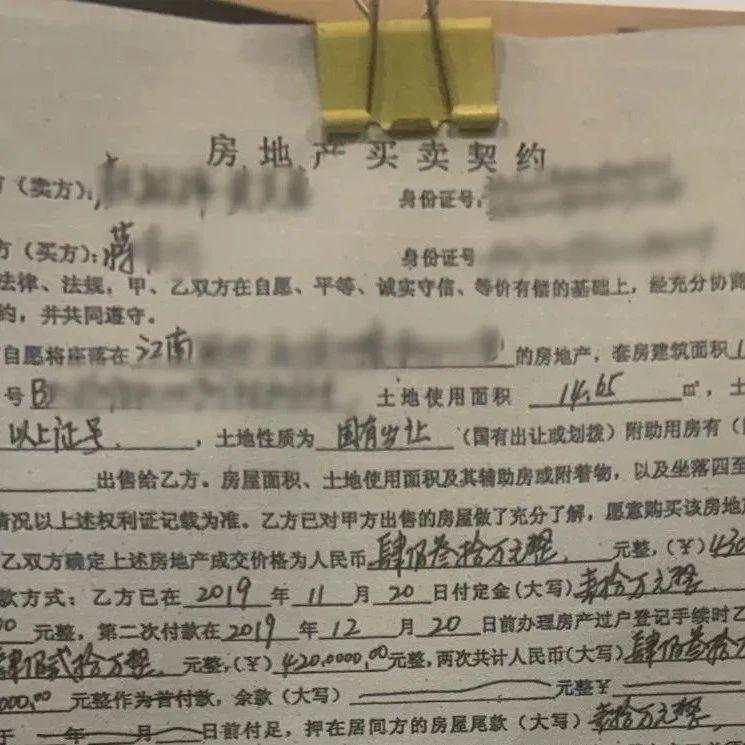 房地产买卖契约
方（卖方）： 身份证号：
方（买方）：蒋 身份证号
法律、法规，甲、乙双方在自愿、平等、诚实守信、等价有偿的基础上，经充分协商
约，并共同遵守。
自愿将座落在江南 的房地产，套房建筑面积1
号B 土地使用面积 14.65 ㎡，土
以上证号，土地性质为 国有出让（国有出让或划拨）附助用房有（
出售给乙方。房屋面积、土地使用面积及其辅助房或附着物，以及坐落四至
情况以上述权利证记载为准。乙方已对甲方出售的房屋做了充分了解，愿意购买该房地
乙双方确定上述房地产成交价格为人民币肆佰叁拾万元整 元整，（￥）430
款方式：乙方已在 2019 年 11 月 20 日付定金（大写）壹拾万元整
00 元整，第二次付款在 2019 年 12 月 20 日前办理房产过户登记手续时乙
肆佰贰拾万整 元整，（￥）420.0000.00元整，两次共计人民币（大写）肆佰叁拾万
000.00 元整作为首付款，余款（大写） 元整￥
于 年 月 日前付足，押在居间方的房屋尾款（大写）壹拾万元整